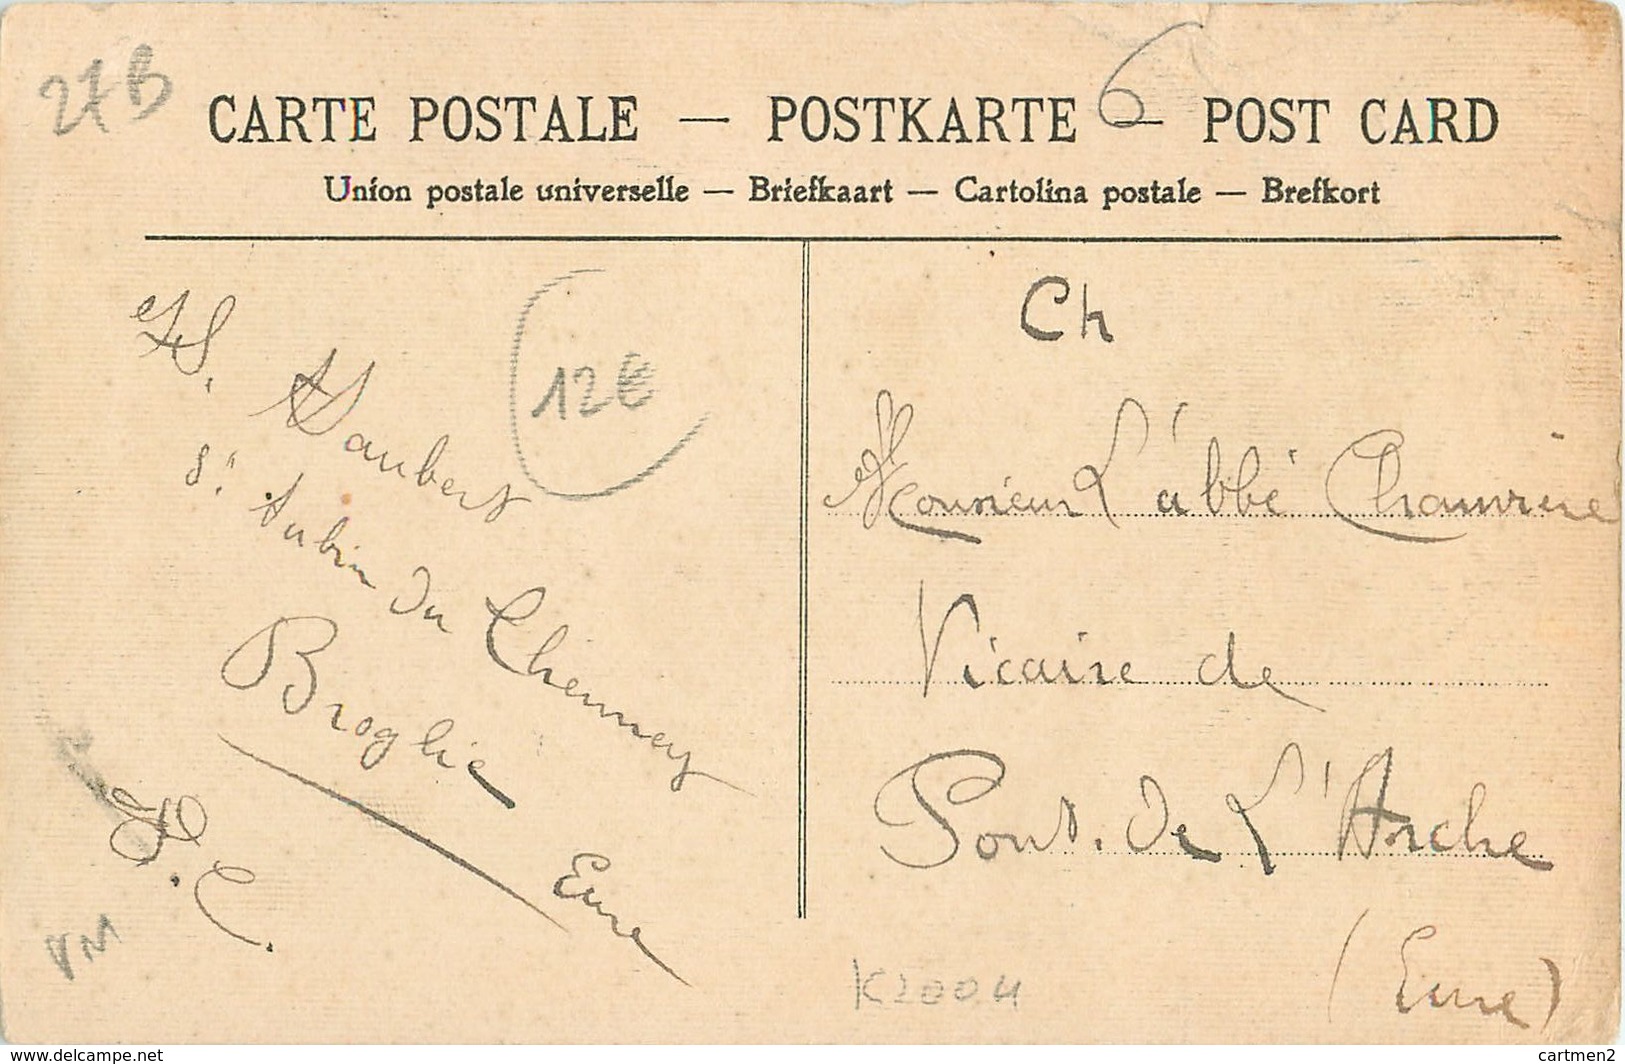 27B
6
CARTE POSTALE — POSTKARTE — POST CARD
Union postale universelle — Briefkaart — Cartolina postale — Brefkort
12€
H. Haubert
St. Aubin du Thenney
Broglie
Eure
Ch
Monsieur L'abbé
Vicaire de
Pont. de L'Arche
(Eure)
K2004
www.delcampe.net
cartmen2